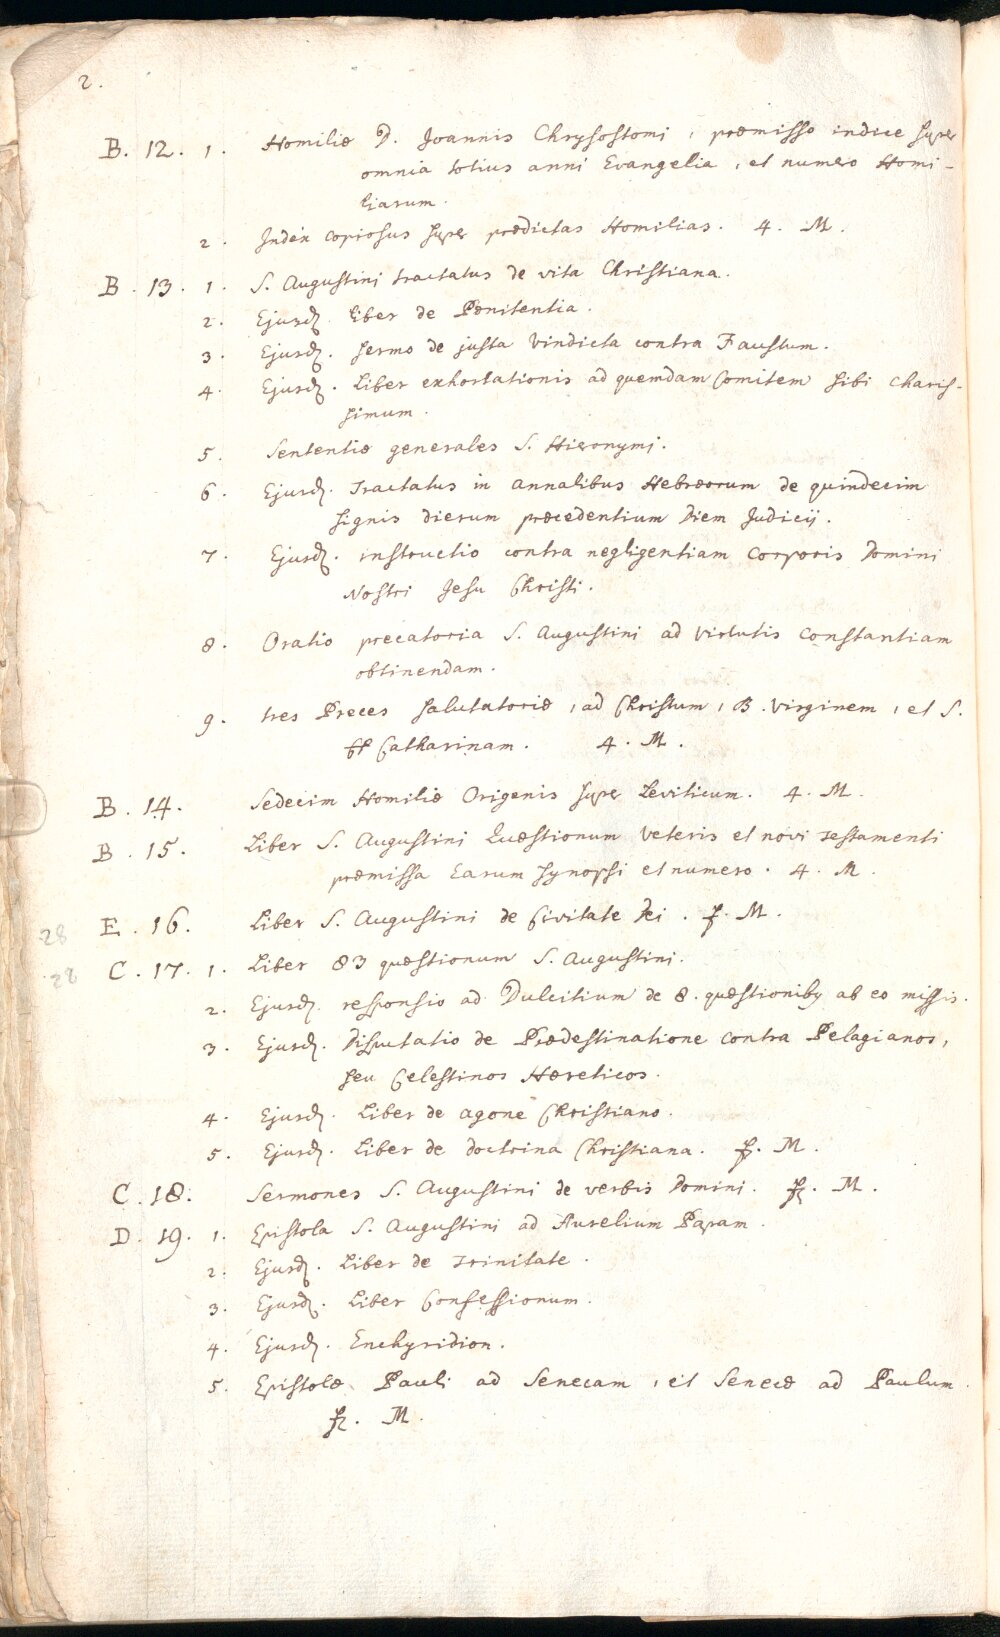 2.
B. 12. 1. Homiliæ D. Joannis Chrysostomi, præmisso indice super
omnia totius anni Evangelia, et numero Homi-
liarum.
2. Index copiosus super prædictas Homilias. 4. M.
B. 13. 1. S. Augustini tractatus de vita Christiana.
2. Ejusd. liber de Pænitentia.
3. Ejusd. sermo de justa vindicta contra Faustum.
4. Ejusd. Liber exhortationis ad quemdam Comitem sibi charis-
simum.
5. Sententiæ generales S. Hieronymi.
6. Ejusd. Tractatus in annalibus Hebræorum de quindecim
signis dierum præcedentium Diem Judicij.
7. Ejusd. instructio contra negligentiam Corporis Domini
Nostri Jesu Christi.
8. Oratio precatoria S. Augustini ad virtutis constantiam
obtinendam.
9. tres Preces salutatoriæ, ad Christum, B. Virginem, et S.
Catharinam. 4. M.
B. 14. Sedecim Homiliæ Origenis super Leviticum. 4. M.
B. 15. Liber S. Augustini Quæstionum Veteris et novi testamenti
præmissa earum synopsi et numero. 4. M.
E. 16. Liber S. Augustini de Civitate Dei. f. M.
28
C. 17. 1. Liber 83 quæstionum S. Augustini.
28
2. Ejusd. responsio ad Dulcitium de 8. quæstionibus ab eo missis.
3. Ejusd. Disputatio de Prædestinatione contra Pelagianos,
seu Celestinos Hæreticos.
4. Ejusd. Liber de agone Christiano.
5. Ejusd. Liber de doctrina Christiana. f. M.
C. 18. Sermones S. Augustini de verbis Domini. f. M.
D. 19. 1. Epistola S. Augustini ad Aurelium Papam.
2. Ejusd. Liber de Trinitate.
3. Ejusd. Liber Confessionum.
4. Ejusd. Enchyridion.
5. Epistolæ Pauli ad Senecam, et Senecæ ad Paulum.
f. M.